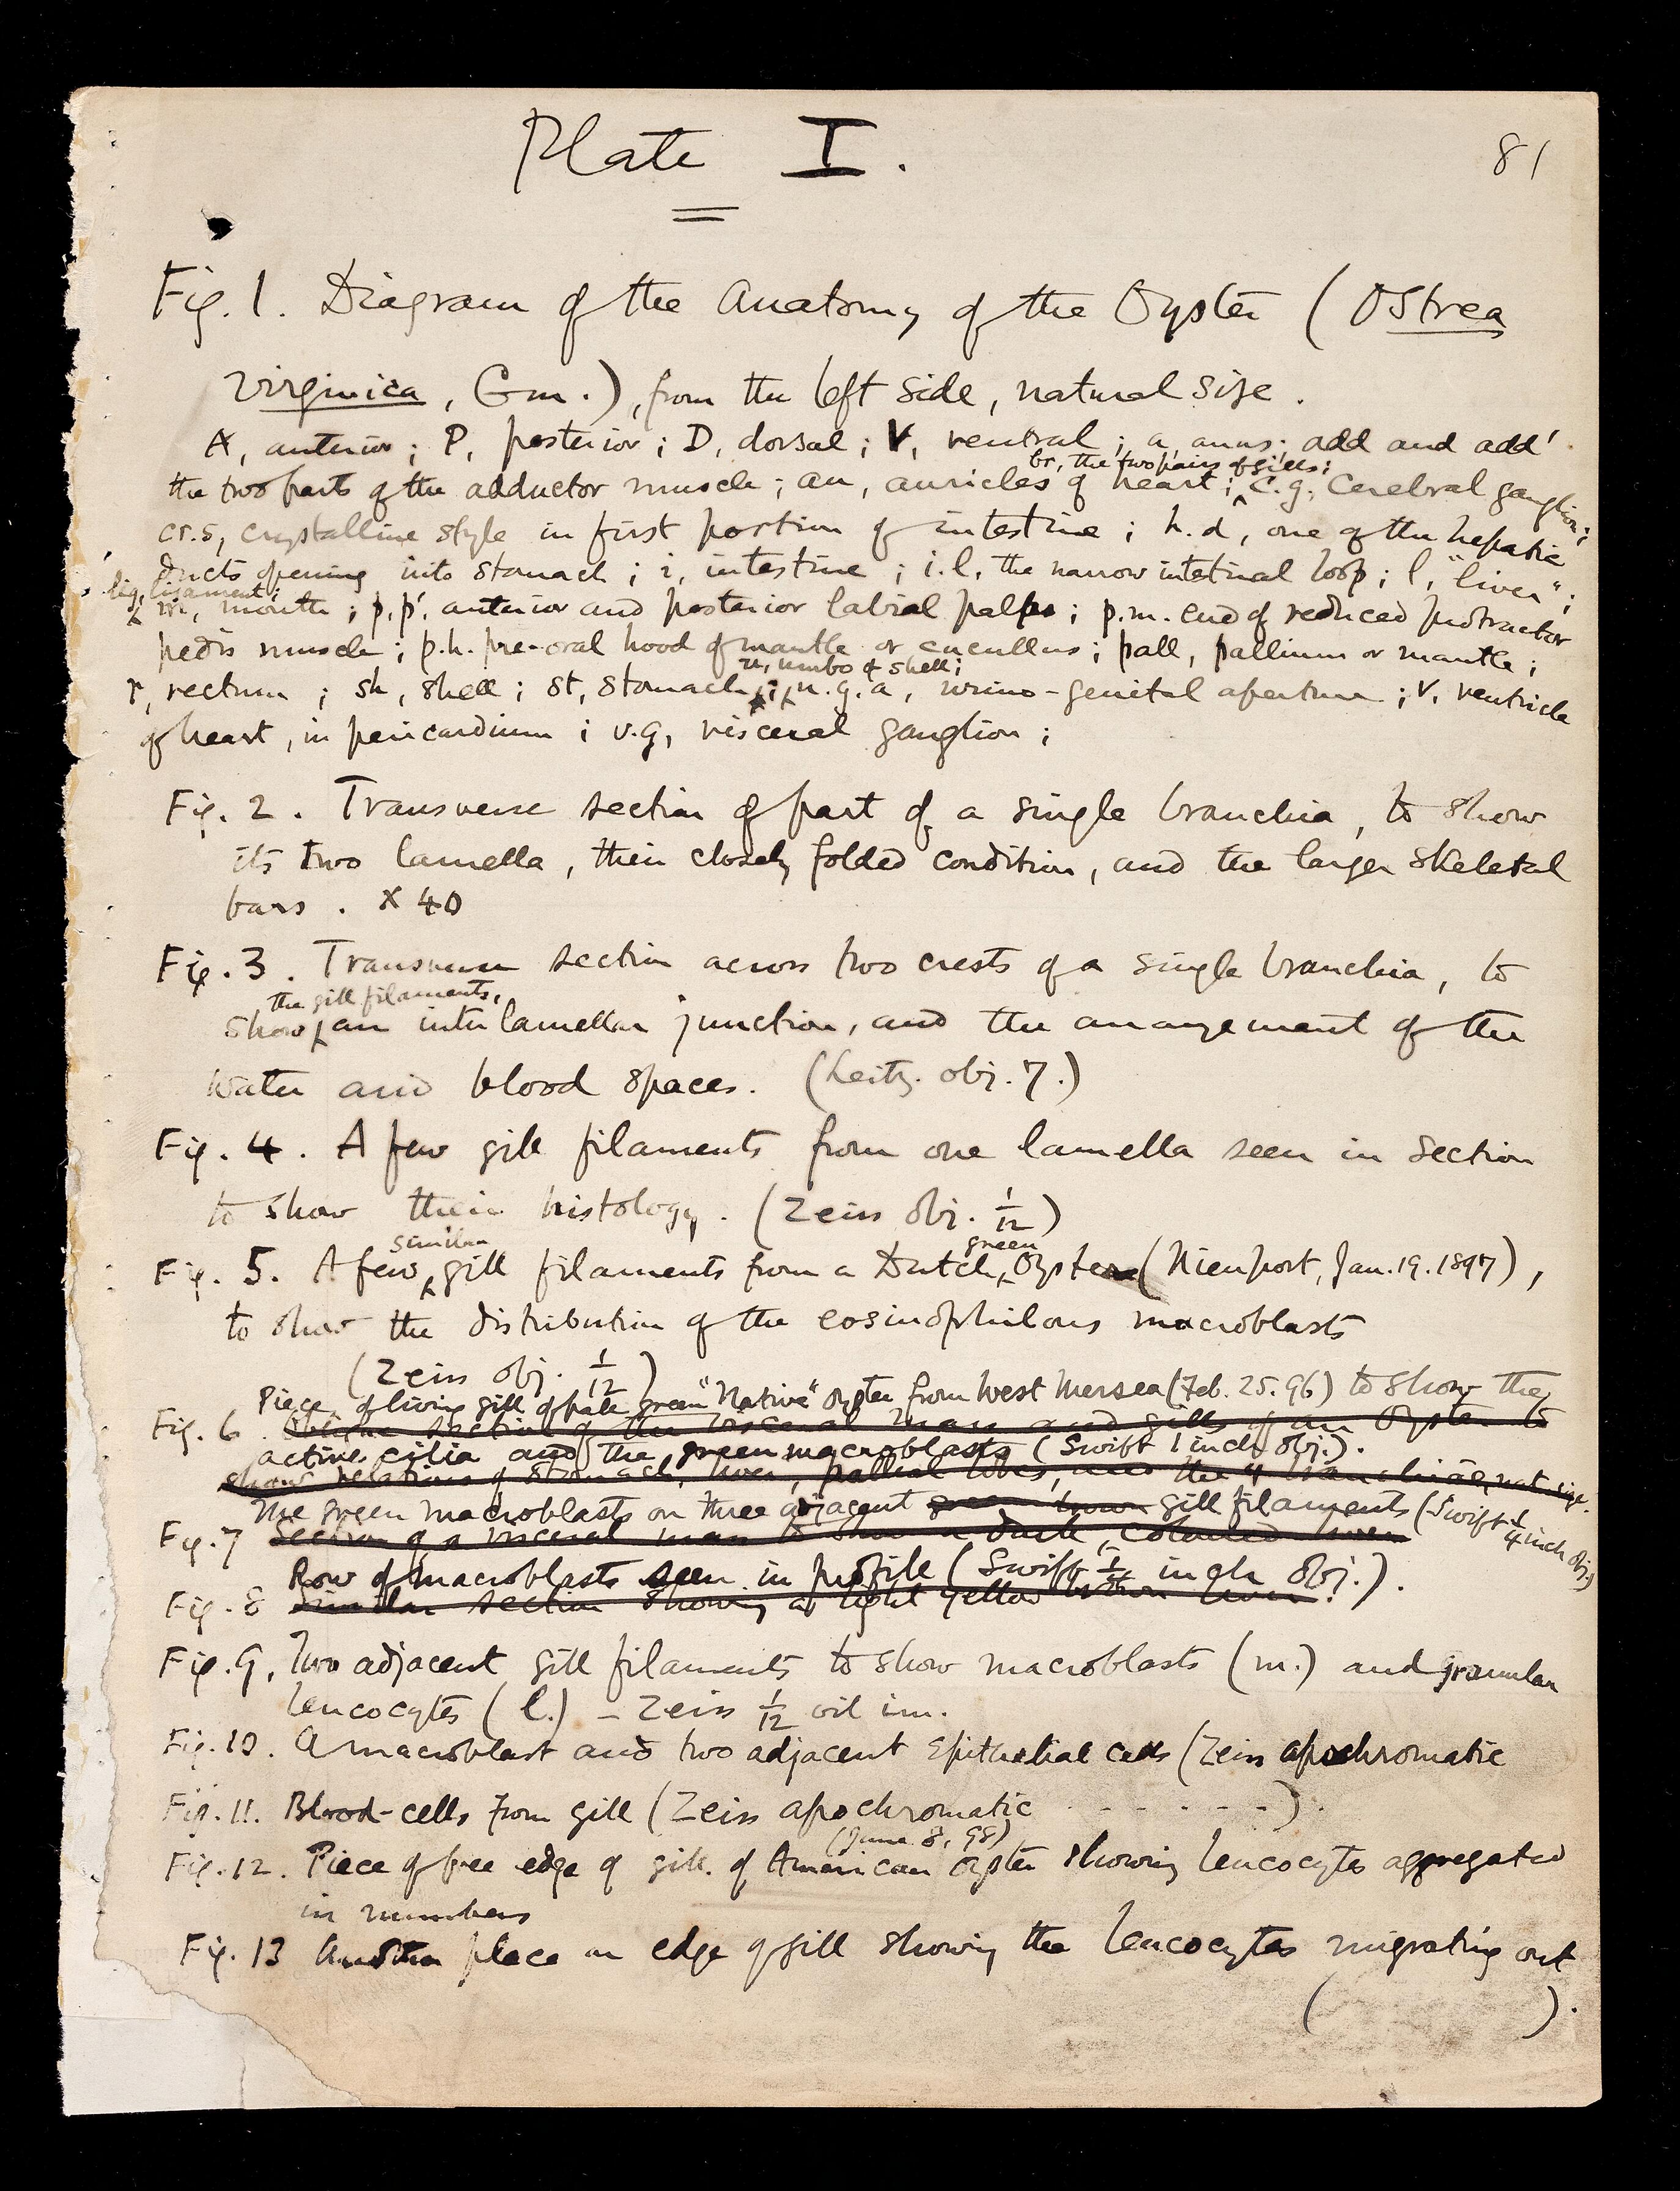 Plate I.
81
Fig. 1. Diagram of the Anatomy of the Oyster (Ostrea
virginica, Gm.), from the left side, natural size.
A, anterior; P, posterior; D, dorsal; V, ventral; a, anus; add and add'
br, the two pairs of gills;
the two parts of the adductor muscle; au, auricles of heart; c.g. cerebral ganglion;
cr.s, crystalline style in first portion of intestine; h.d, one of the hepatic
ducts opening into stomach; i, intestine; i.l, the narrow intestinal loop; l, "liver";
lig, ligament;
m, mouth; p, p', anterior and posterior labial palps; p.m. end of reduced protractor
pedis muscle; p.h. pre-oral hood of mantle or cucullus; pall, pallium or mantle;
u, umbo of shell;
r, rectum; sh, shell; st, stomach; u.g.a, urino-genital aperture; v, ventricle
of heart, in pericardium; v.g, visceral ganglion;
Fig. 2. Transverse section of part of a single branchia, to show
its two lamella, their closely folded condition, and the larger skeletal
bars. X 40
Fig. 3. Transverse section across two crests of a single branchia, to
the gill filaments,
show an interlamellar junction, and the arrangement of the
water and blood spaces. (Leitz. obj. 7.)
Fig. 4. A few gill filaments from one lamella seen in section
to show their histology. (Zeiss obj. 1/12)
similar green
Fig. 5. A few gill filaments from a Dutch Oyster (Nieuport, Jan. 19. 1897),
to show the distribution of the eosinophilous macroblasts
(Zeiss obj. 1/12)
Piece of living gill of pale green "Native" oyster from West Mersea (Feb. 25. 96) to show the
Fig. 6. Oblique section of the visceral mass and gills of an Oyster to
active cilia and the green macroblasts (Swift 1 inch obj.).
show relations of stomach, liver, pallial lobes, and the 4 branchiae, nat. size.
The green macroblasts on three adjacent gill filaments (Swift 1/4 inch obj.)
Fig. 7 Section of a visceral mass to show a dark coloured liver
Row of macroblasts seen in profile (Swift inch obj.).
Fig. 8 Similar section showing a light yellow brown liver.
Fig. 9. Two adjacent gill filaments to show macroblasts (m.) and granular
leucocytes (l.) – Zeiss 1/12 oil im.
Fig. 10. A macroblast and two adjacent epithelial cells (Zeiss apochromatic
Fig. 11. Blood-cells from gill (Zeiss apochromatic - - - - - -).
(June 8, 98)
Fig. 12. Piece of free edge of gill of American Oyster showing leucocytes aggregated
in numbers
Fig. 13 Another place on edge of gill showing the leucocytes migrating out
( ).